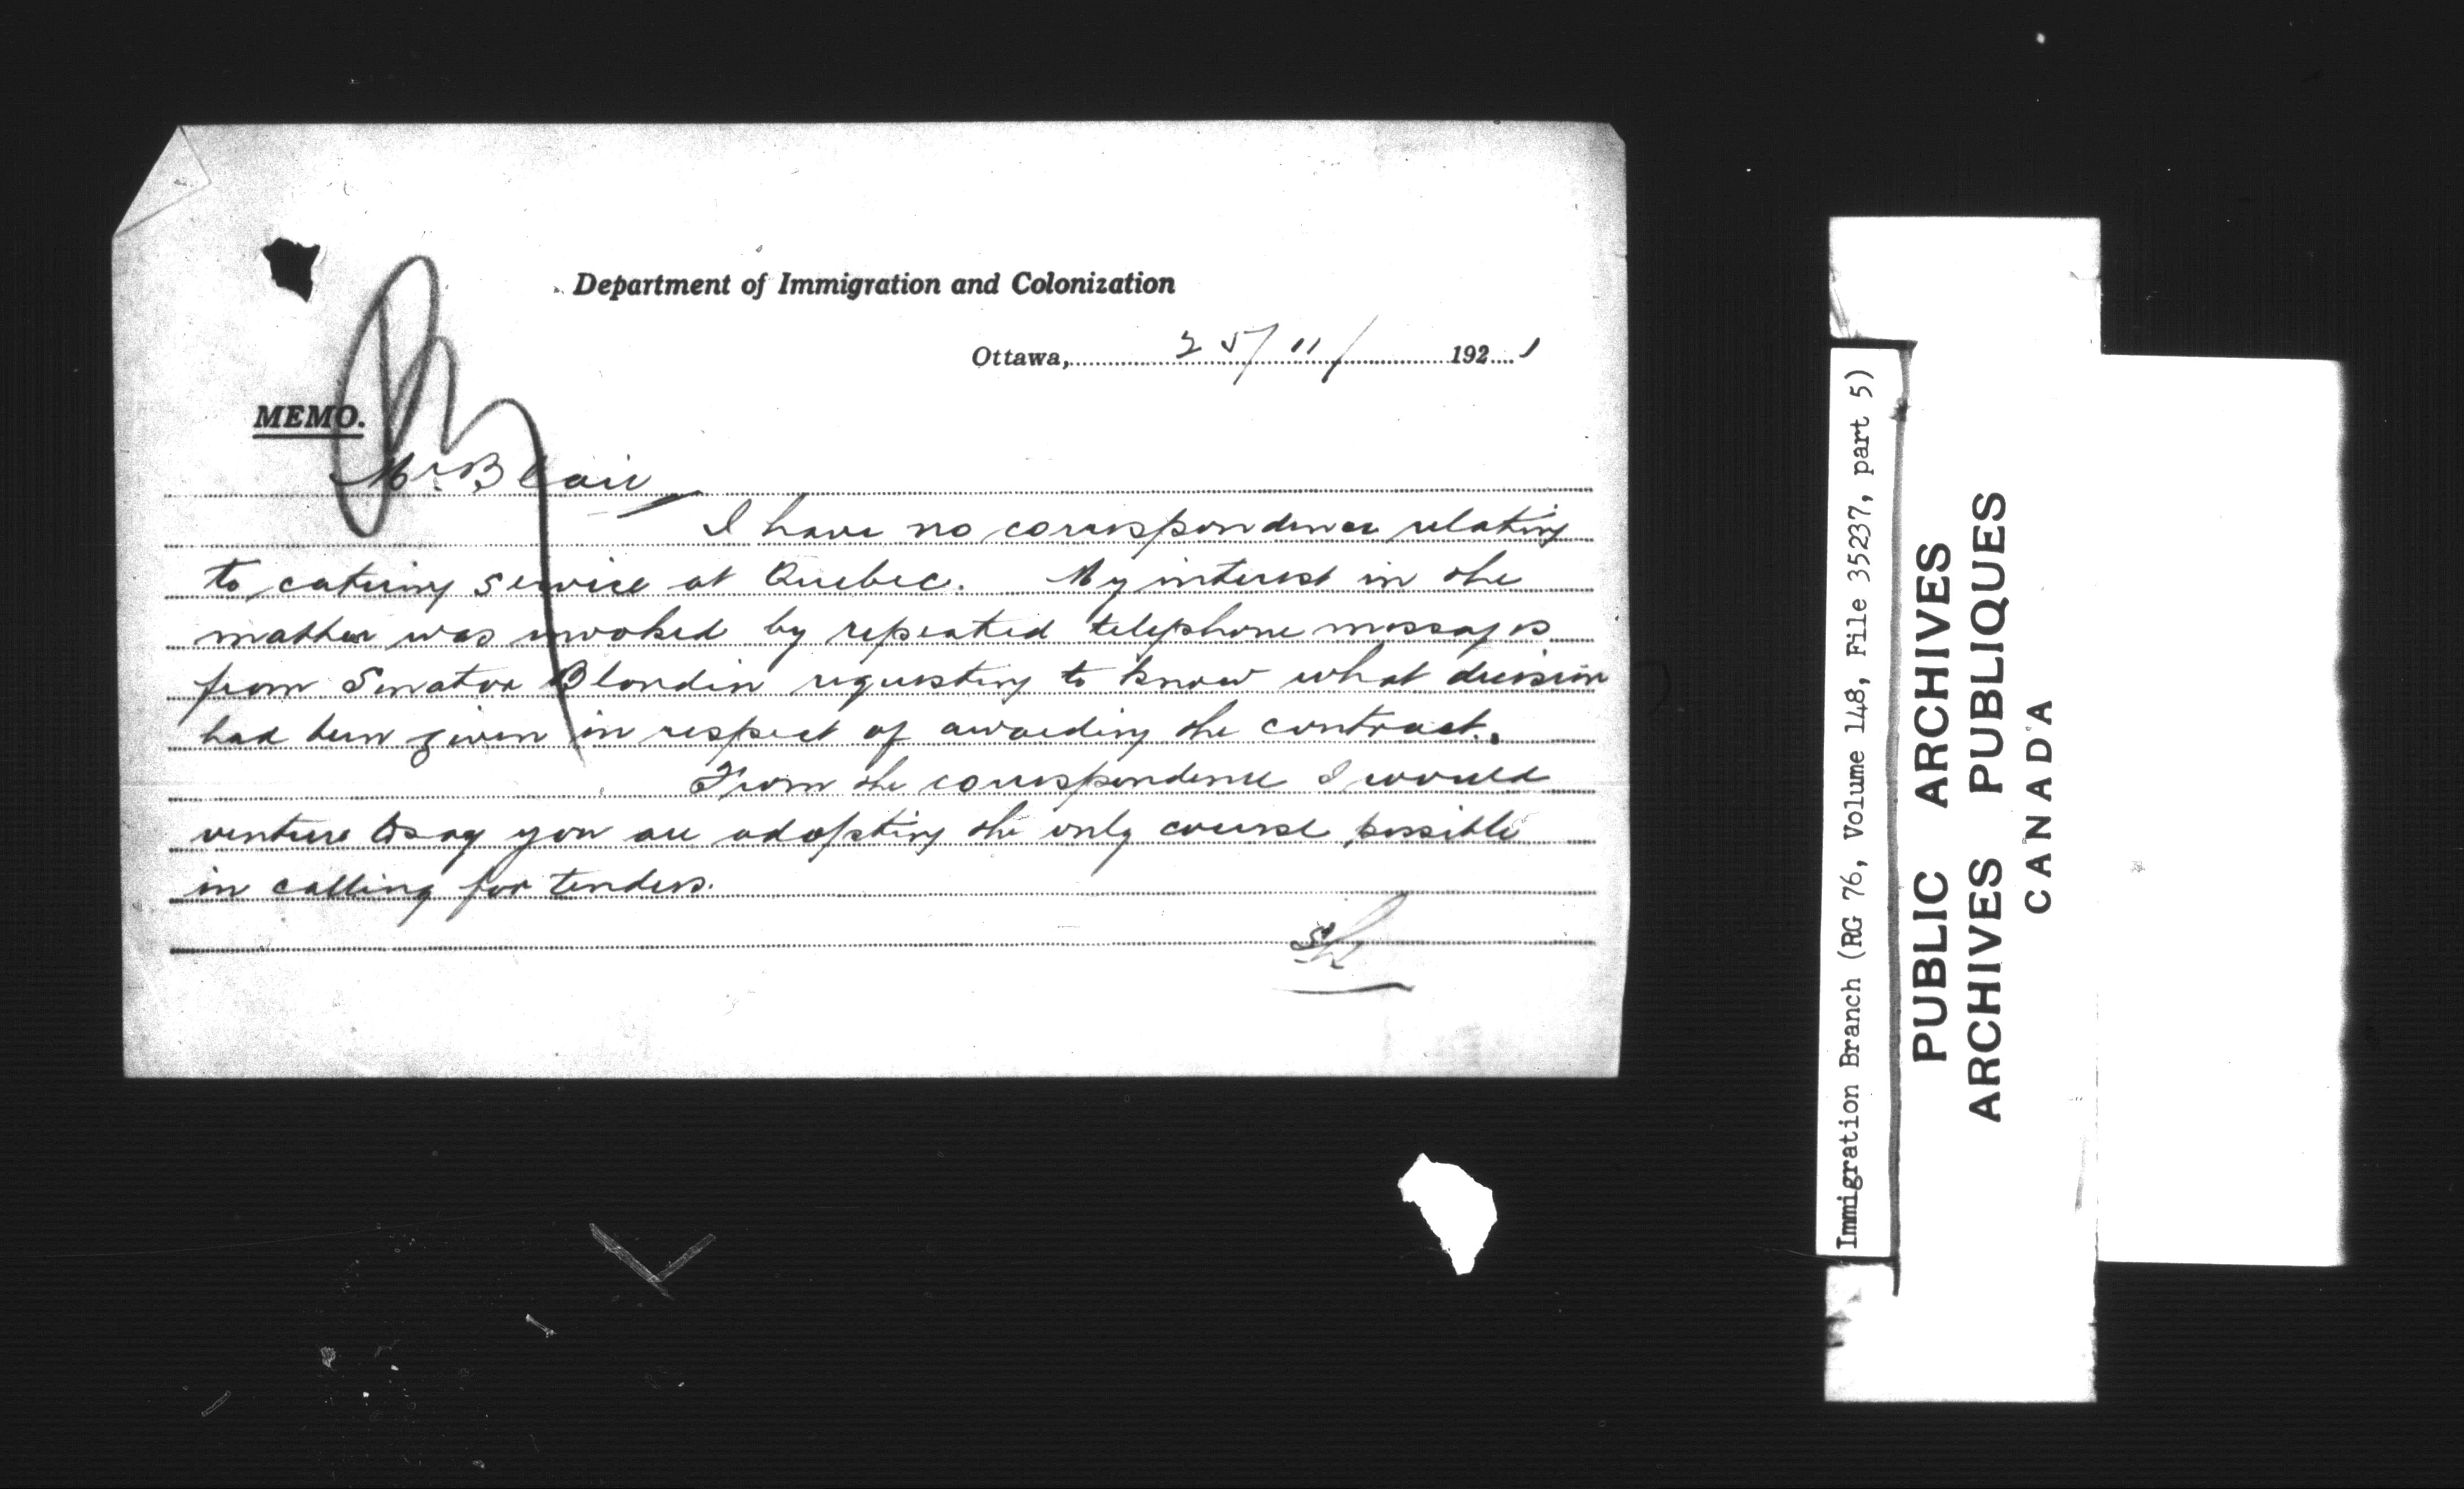 Department of Immigration and Colonization
Ottawa, 25/11/ 1921
MEMO.
Mr. Blair
I have no correspondence relating
to catering service at Quebec. My interest in the
matter was invoked by repeated telephone messages
from Senator Blondin requesting to know what decision
had been given in respect of awarding the contract.
From the correspondence I would
venture to say you are adopting the only course possible
in calling for tenders.
Immigration Branch (RG 76, Volume 148, File 35237, part 5)
PUBLIC ARCHIVES
ARCHIVES PUBLIQUES
CANADA